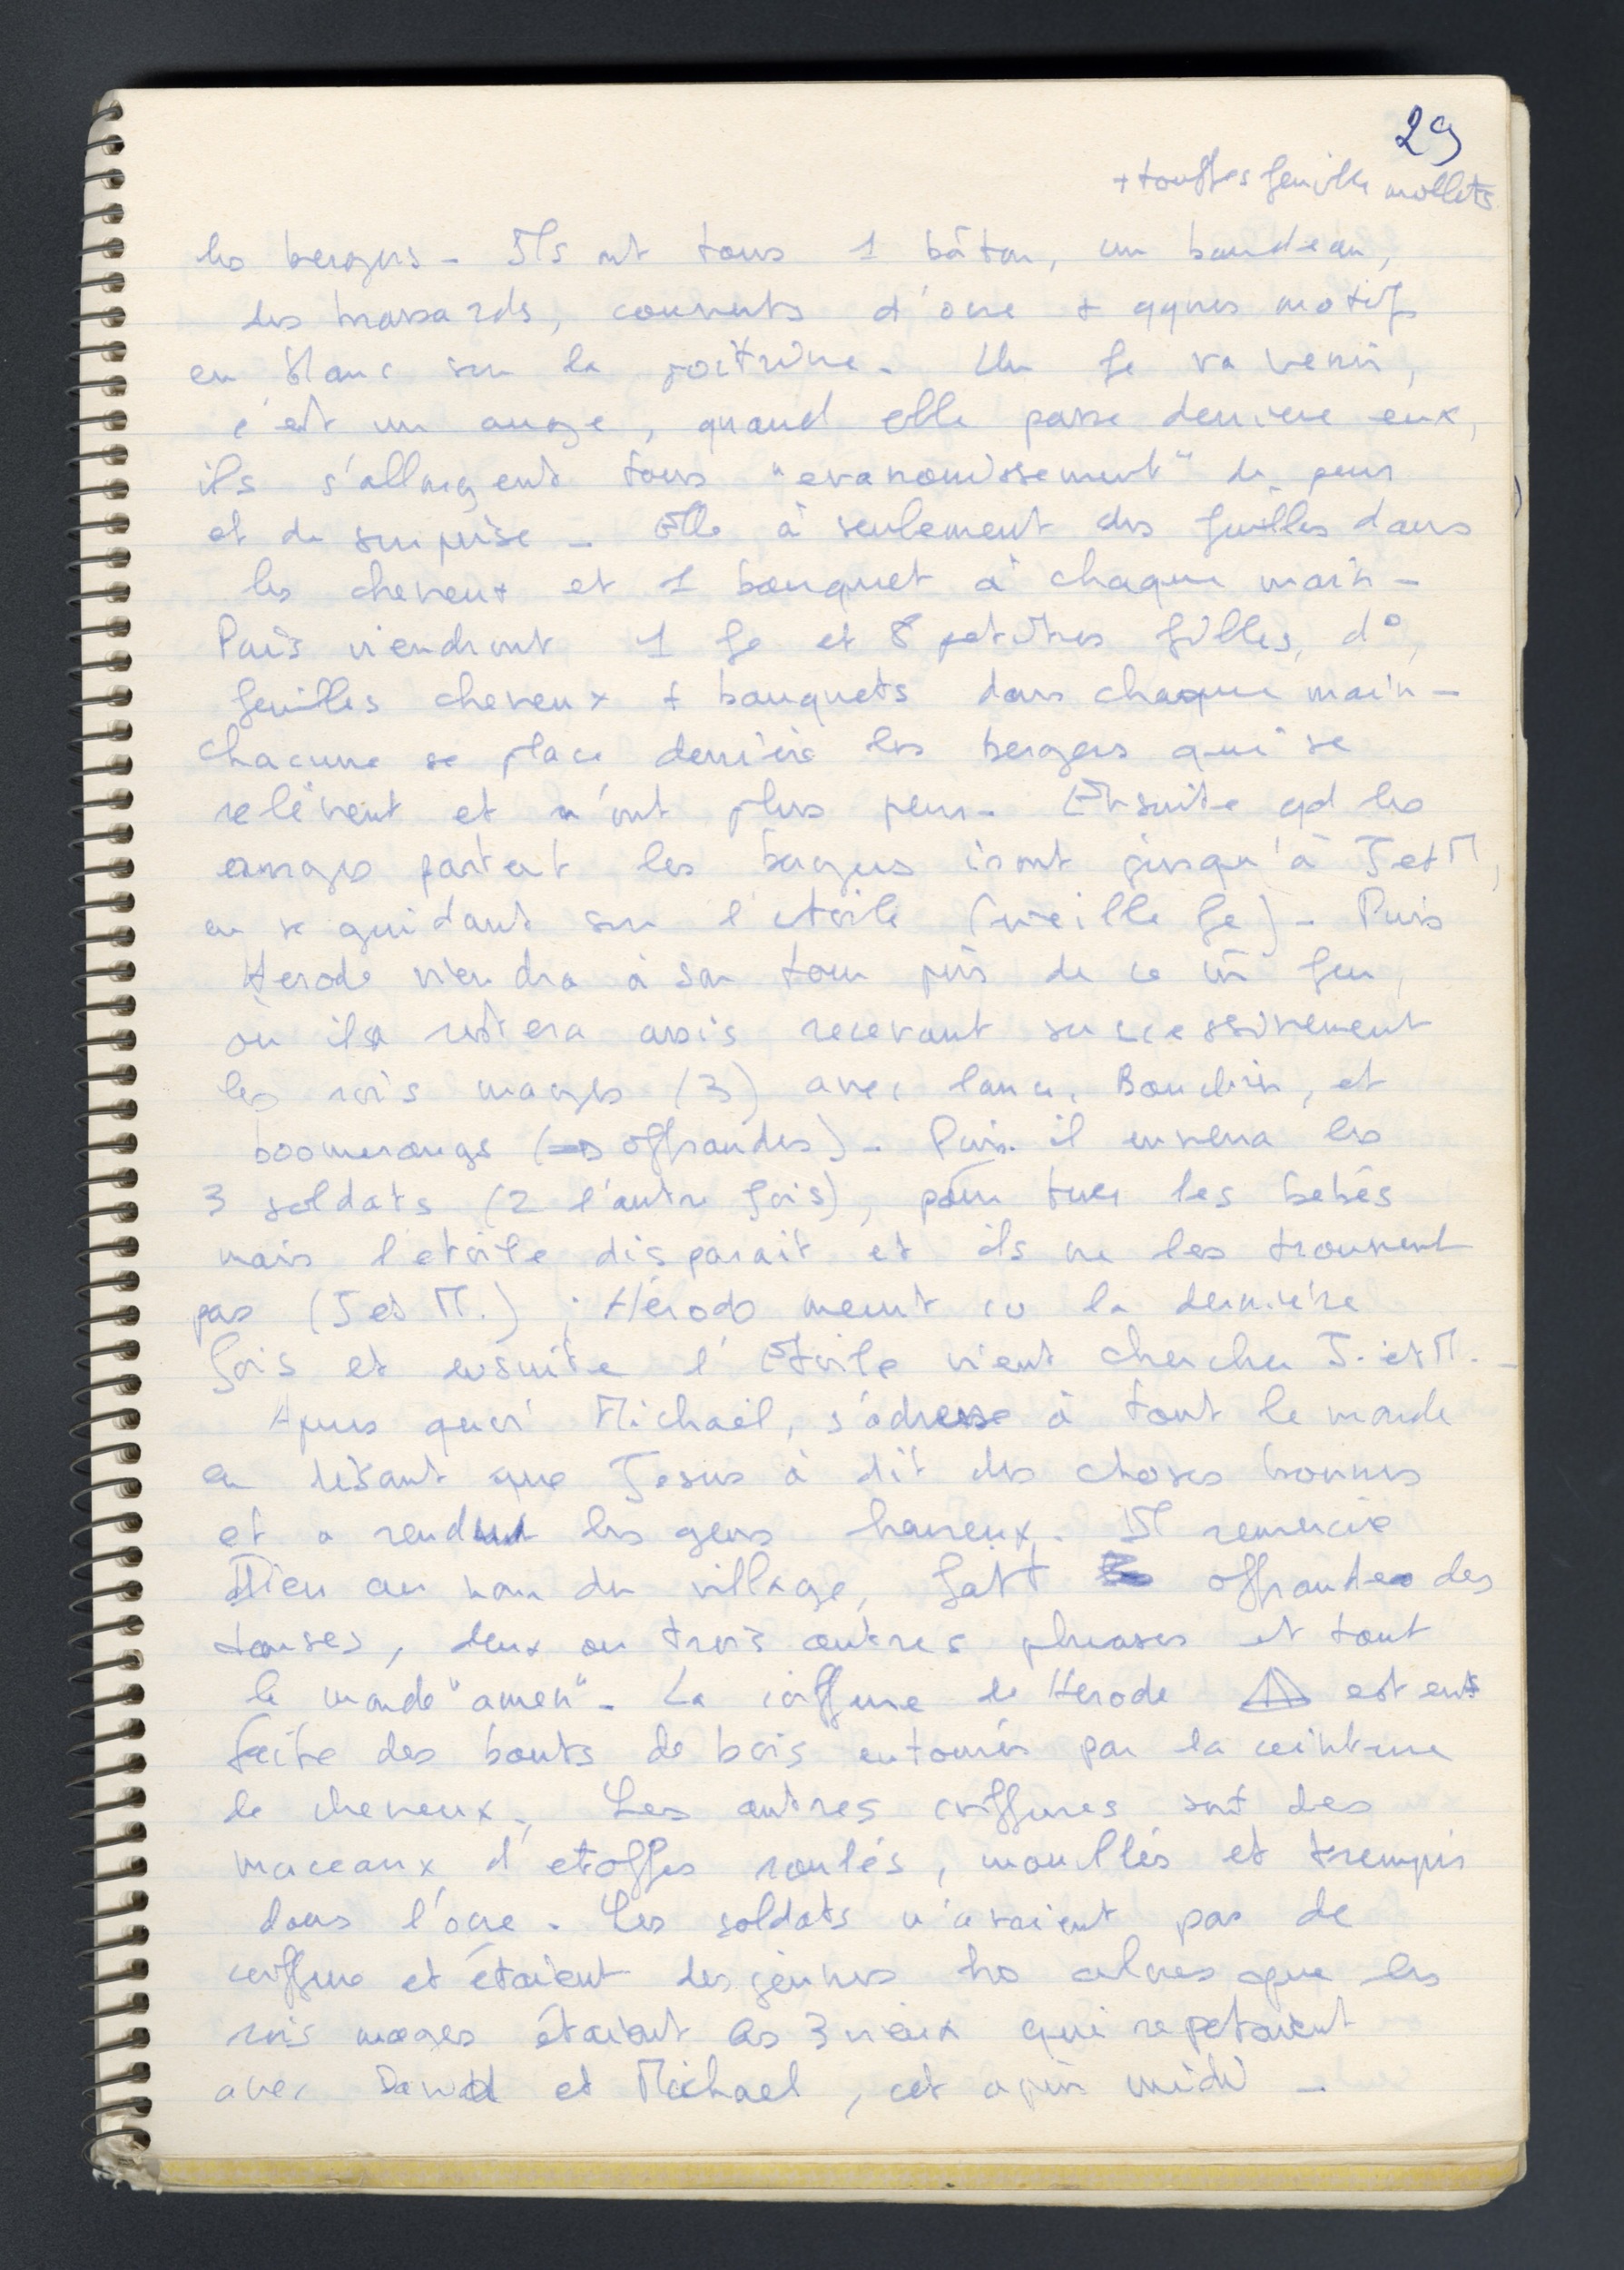 29
+ touffes feuilles mollets
les bergers - Ils ont tous 1 bâton, un bandeau,
des brassards, couverts d'ocre + qques motifs
en blanc sur la poitrine. Une fe va venir,
c'est un ange, quand elle passe derriere eux,
ils s'allongent tous "evanouissement" de peur
et de surprise - Elle à seulement des feuilles dans
les cheveux et 1 bouquet à chaque main -
Puis viendront 1 fe et 8 petites filles, d°,
feuilles cheveux + bouquets dans chaque main -
chacune se place derrière les bergers qui se
relèvent et n'ont plus peur - Ensuite qd les
anges partent les bergers iront jusqu'à J et M,
en se guidant sur l'etoile (vieille fe) - Puis
Herode viendra à son tour près de ce m̂ feu,
où il restera assis recevant successivement
les rois mages (3) avec lance, Bouclier, et
boomerangs (=> offrandes) - Puis il enverra les
3 soldats (2 l'autre fois), pour tuer les bebés
mais l'etoile disparait et ils ne les trouvent
pas (J et M.) ; Hérode meurt co la dernière
fois et ensuite l'Etoile vient chercher J. et M. -
Apres quoi Michaël, s'adresse à tout le monde
en disant que Jesus à dit des choses bonnes
et a rendu les gens heureux. Il remercie
Dieu au nom du village, fait offrandes des
danses, deux ou trois autres phrases et tout
le monde "amen" - La coiffure de Herode est ent
faite des bouts de bois entourés par la ceinture
de cheveux, Les autres coiffures sont des
morceaux d'etoffes roulés, mouillés et trempés
dans l'ocre. Les soldats n'avaient pas de
coiffure et étaient des jeunes ho alors que les
rois mages étaient les 3 vieux qui repetaient
avec David et Michael, cet après midi -